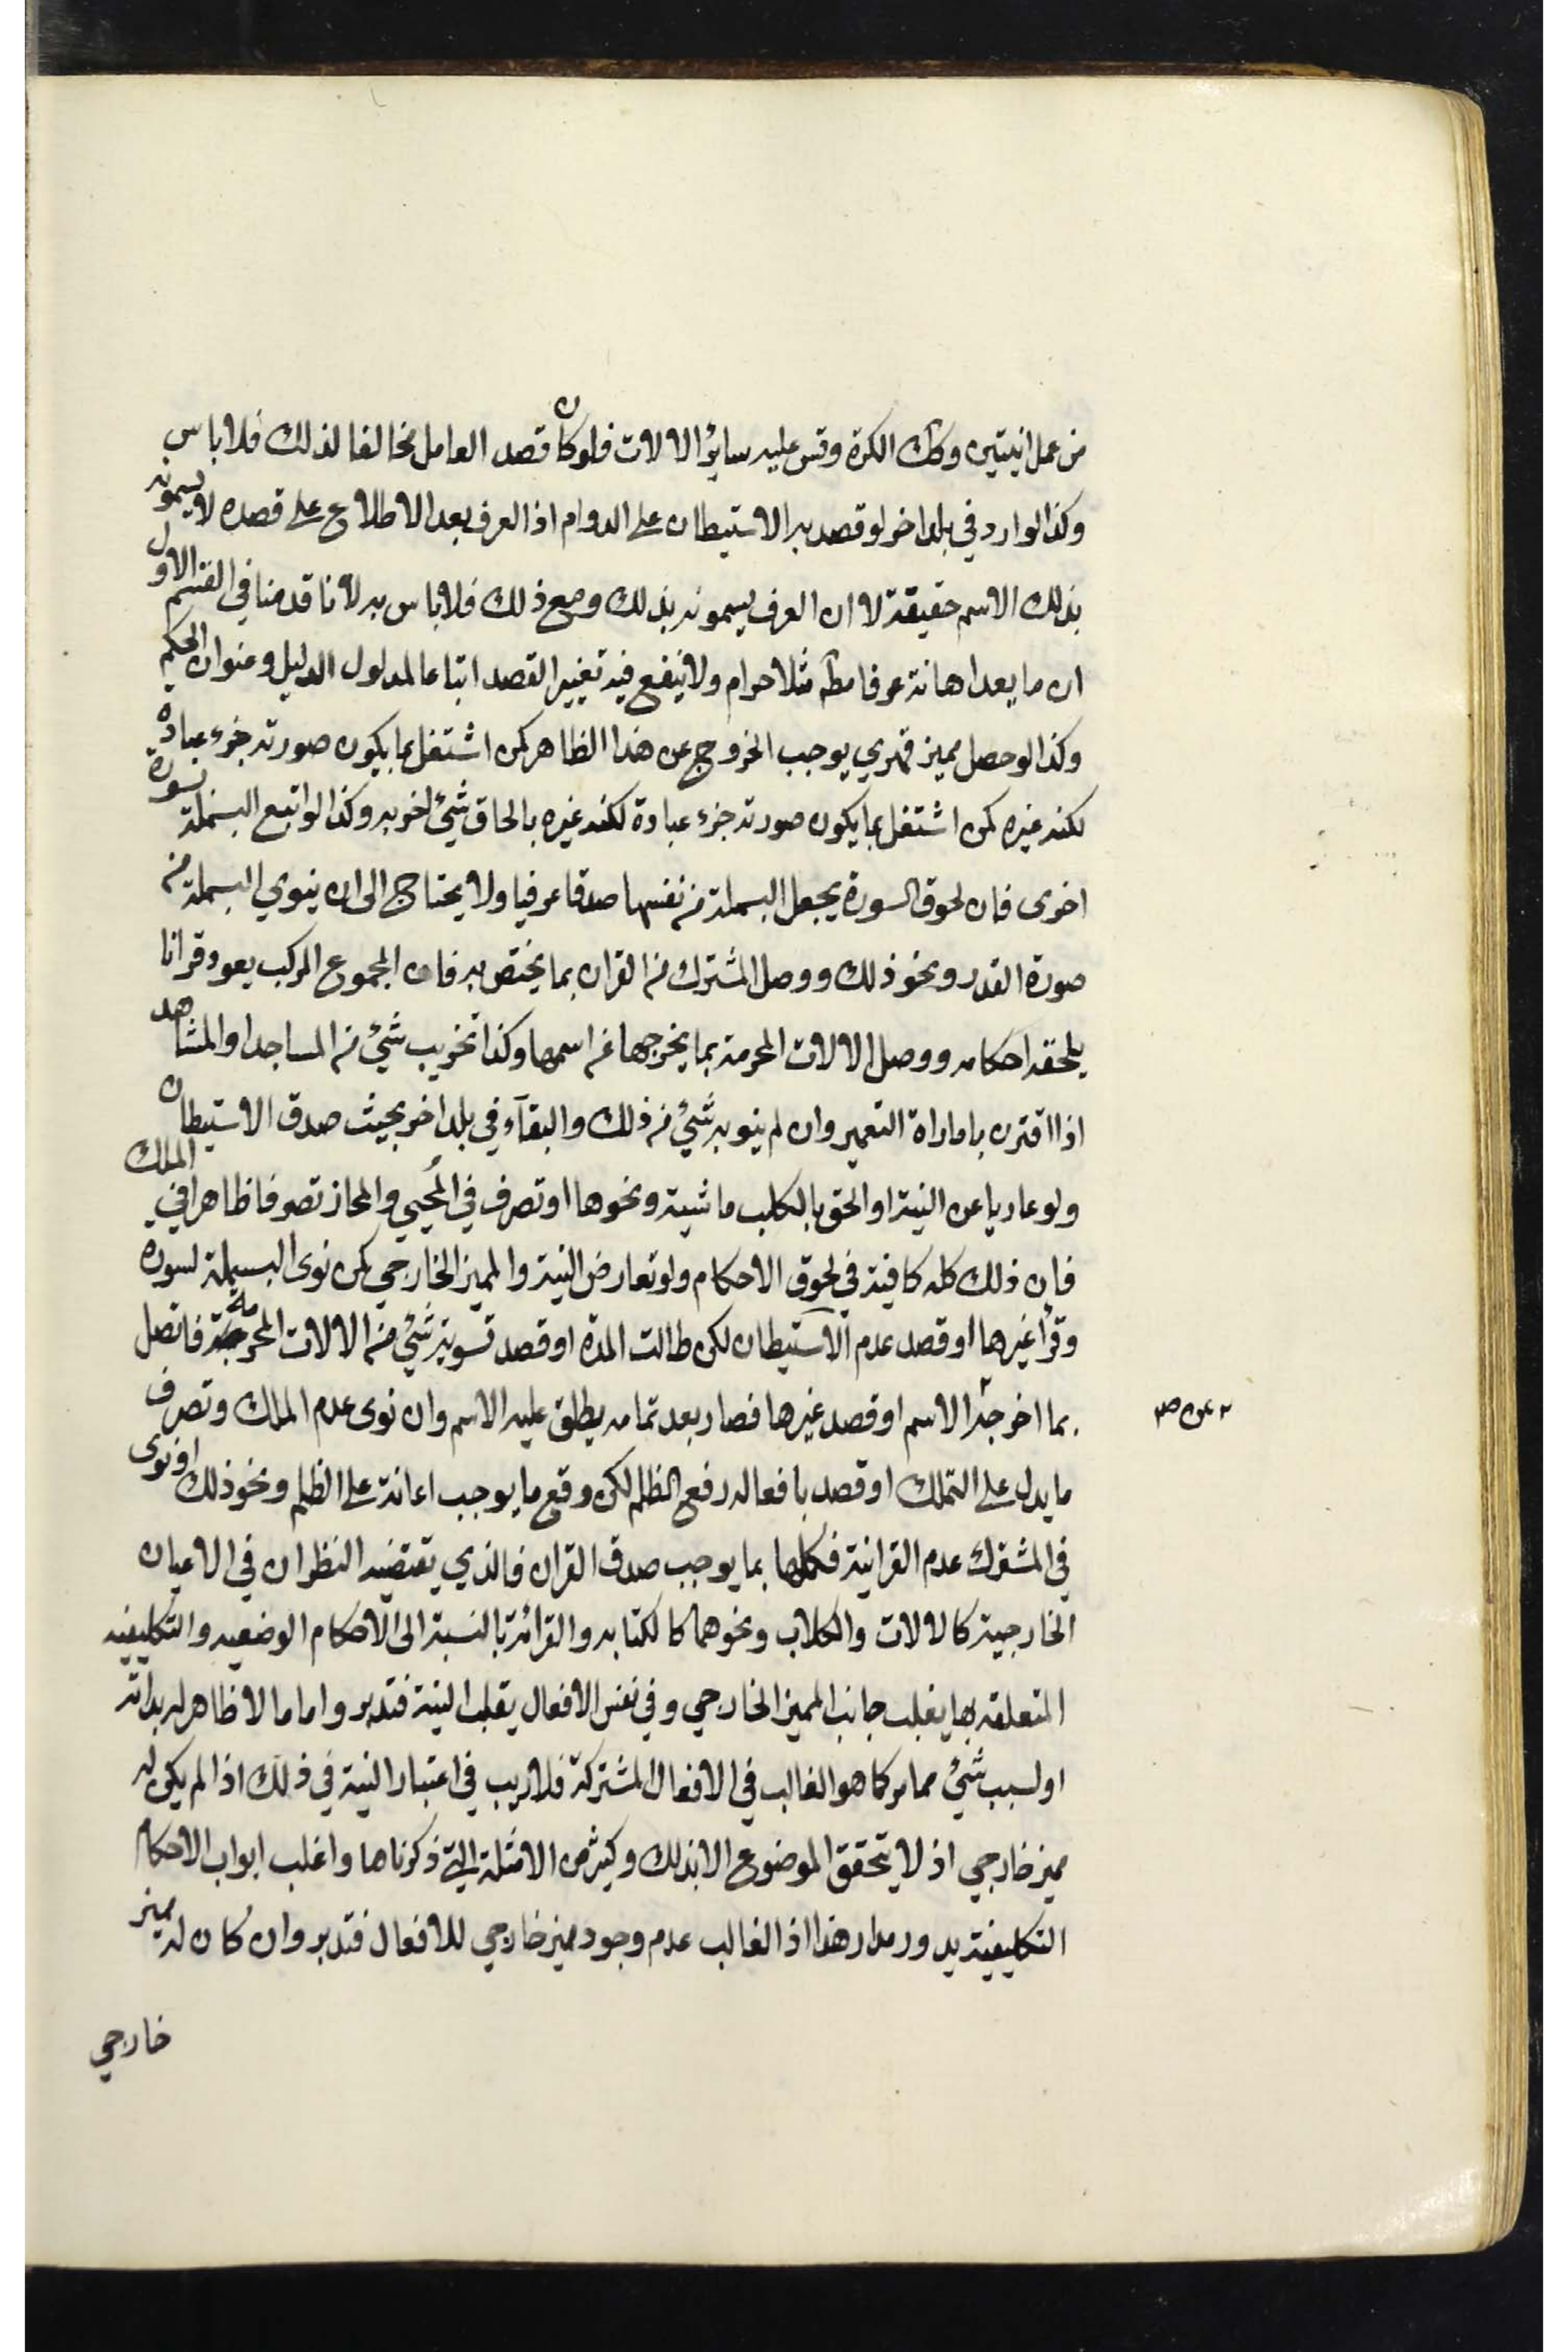 من عمل انيتين وكك الكرة وقس عليه ساير الالات فلو كان قصد العامل مخالفا لذلك فلا باس
وكذا لوارد في بلد اخر لو قصد به الاستيطان على الدوام اذ العرف بعد الاطلاع على قصده لا يسمونه
بذلك الاسم حقيقة لا ان العرف يسمونه بذلك ومع ذلك فلا باس به لانا قدمنا في القسم الاول
ان ما يعد اهانة عرفا مطه مثلا حرام ولا ينفع فيه تغيير القصد اتباعا لمدلول الدليل وعنوان الحكم
وكذا لو حصل مميز قهري يوجب الخروج عن هذا الظاهر كمن اشتغل بما يكون صورته جزء عبادة
لكنه غيره كمن اشتغل بما يكون صورته جزء عبادة لكنه غيره بالحاق شئ اخر به وكذا لو اتبع البسملة بسورة
اخرى فان لحوق السورة يجعل البسملة من نفسها صدقا عرفيا ولا يحتاج الى ان ينوي البسملة من
صورة القدر ونحو ذلك ووصل المشترك من القران بما يختص به فان المجموع المركب يعود قرانا
يلحقه احكامه ووصل الالات المحرمة بما يخرجها عن اسمها وكذا تخريب شئ من المساجد او المشاهد
اذا اقترن باماراة التعمير وان لم ينو به شئ من ذلك والبقآء في بلد اخر بحيث صدق الاستيطان
ولو عاريا عن النية او الحق بالكلب ماشية ونحوها او تصرف في المُحيي والمحاز تصرفا ظاهرا في الملك
فان ذلك كله كافية في لحوق الاحكام ولو تعارض النية والمميز الخارجي كمن نوى البسملة لسوره
وقرأ غيرها او قصد عدم الاستيطان لكن طالت المدة او قصد تسوية شئ من الالات المحرمة فاتصل
بما اخرجه الاسم او قصد غيرها فصار بعد تمامه يطلق عليه الاسم وان نوى عدم الملك وتصرف
ما يدل على التملك او قصد بافعاله رفع الظلم لكن وقع ما يوجب اعانة على الظلم ونحو ذلك او نوى
في المشترك عدم القرانية فكملها بما يوجب صدق القران فالذي يقتضيه النظر ان في الاعيان
الخارجية كالالات والكلاب ونحوهما كالكتابه والقرائة بالنسبة الى الاحكام الوضعيه والتكليفيه
المتعلقه بها يغلب جانب المميز الخارجي وفي نفس الافعال يقلب النية فتدبر واما ما لا ظاهر له بذاته
او لسبب شئ مما مر كما هو الغالب في الافعال المشتركة فلا ريب في اعتبار النية في ذلك اذا لم يكن له
مميز خارجي اذ لا يتحقق الموضوع الا بذلك وكثير من الامثلة التي ذكرناها واغلب ابواب الاحكام
التكليفية يدور مدار هذا اذ الغالب عدم وجود مميز خارجي للافعال فتدبر وان كان له مميز
خارجي